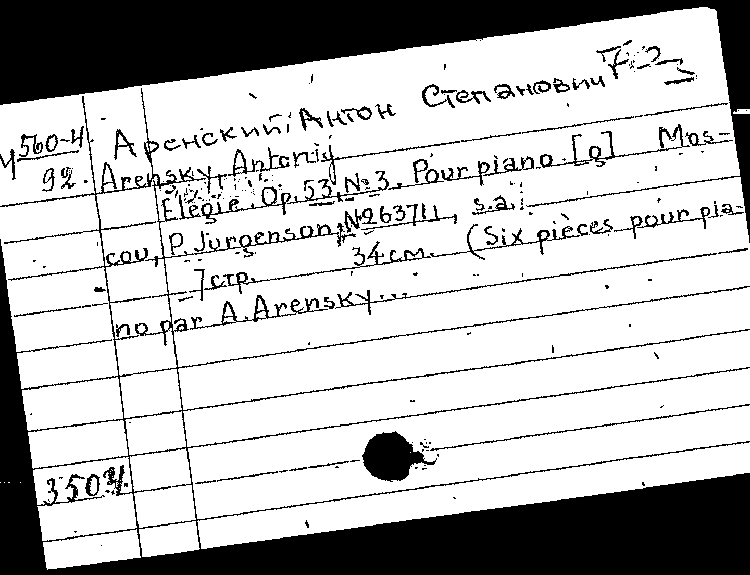 Аренский, Антон Степанович 7-2
3
У 560-4
92.
Arensky, Antonij
Elégie. Op. 53, № 3. Pour piano. [g] Mos-
cou, P. Jurgenson, № 26371, s.a.
7 стр. 34 см. (Six pièces pour pia-
no par A. Arensky...